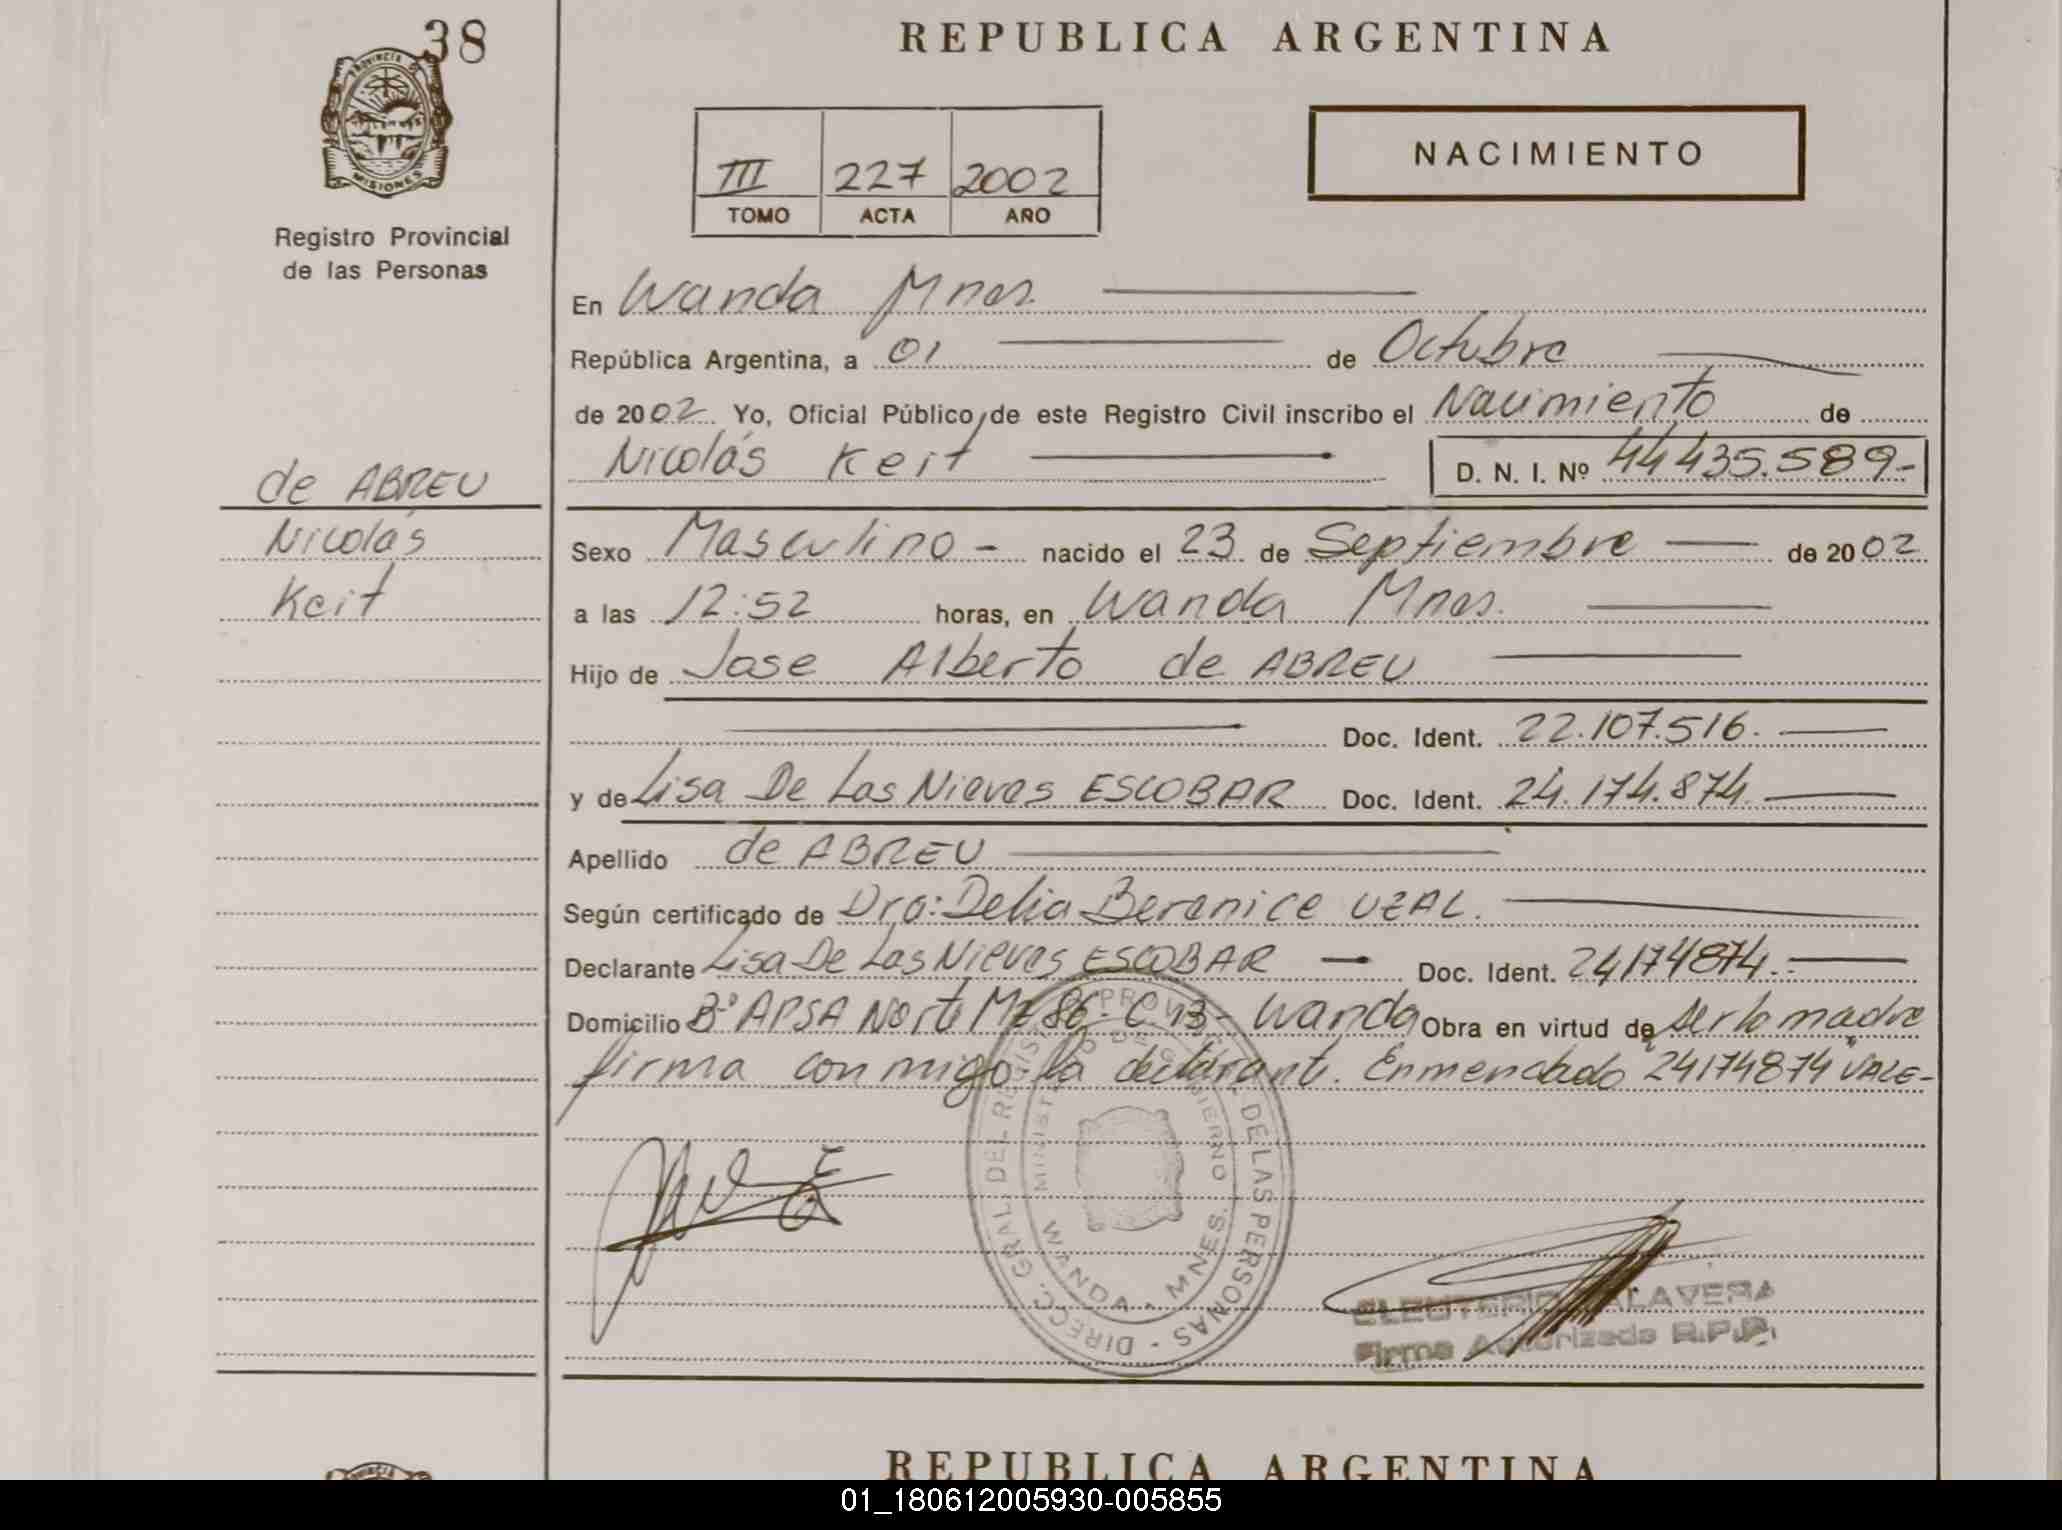 38
REPUBLICA ARGENTINA
PROVINCIA DE
MISIONES
Registro Provincial
de las Personas
III 227 2002
TOMO ACTA AÑO
NACIMIENTO
En Wanda Mnes.
República Argentina, a 01 de Octubre
de 2002 Yo, Oficial Público, de este Registro Civil inscribo el Nacimiento de
Nicolás Keit D. N. I. Nº 44435.589-
de ABREU
Nicolás
Keit
Sexo Masculino - nacido el 23 de Septiembre de 2002
a las 12:52 horas, en Wanda Mnes.
Hijo de Jose Alberto de ABREU
Doc. Ident. 22.107.516.
y de Lisa De Las Nieves ESCOBAR Doc. Ident. 24.174.874.
Apellido de ABREU
Según certificado de Dra: Delia Berenice UZAL.
Declarante Lisa De Las Nieves ESCOBAR Doc. Ident. 24174874.-
Domicilio Bº APSA Norte Mz 86 - C 13 - Wanda Obra en virtud de ser la madre
firma conmigo la declarant. Enmendado "24174874" VALE-
DIRECC. GRAL. DEL REGISTRO PROVINCIAL DE LAS PERSONAS -
MINISTERIO DE GOBIERNO
WANDA - MNES.
ELEUTERIO TALAVERA
Firma Autorizada R.P.P.
REPUBLICA ARGENTINA
01_180612005930-005855